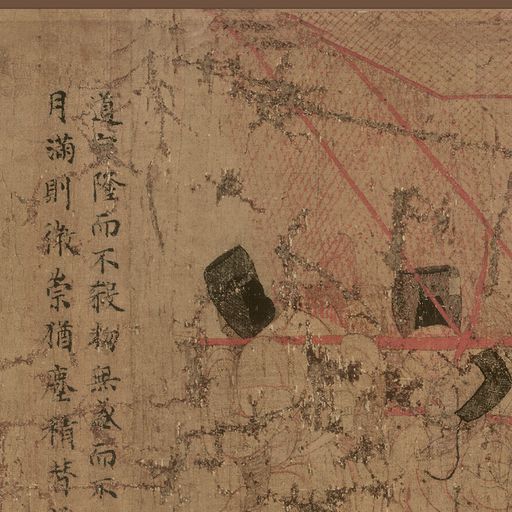 道罔隆而不殺物無盛而不
月滿則微崇猶塵積替